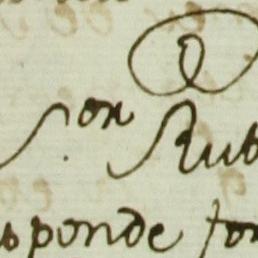 S.on Rub
sponde for